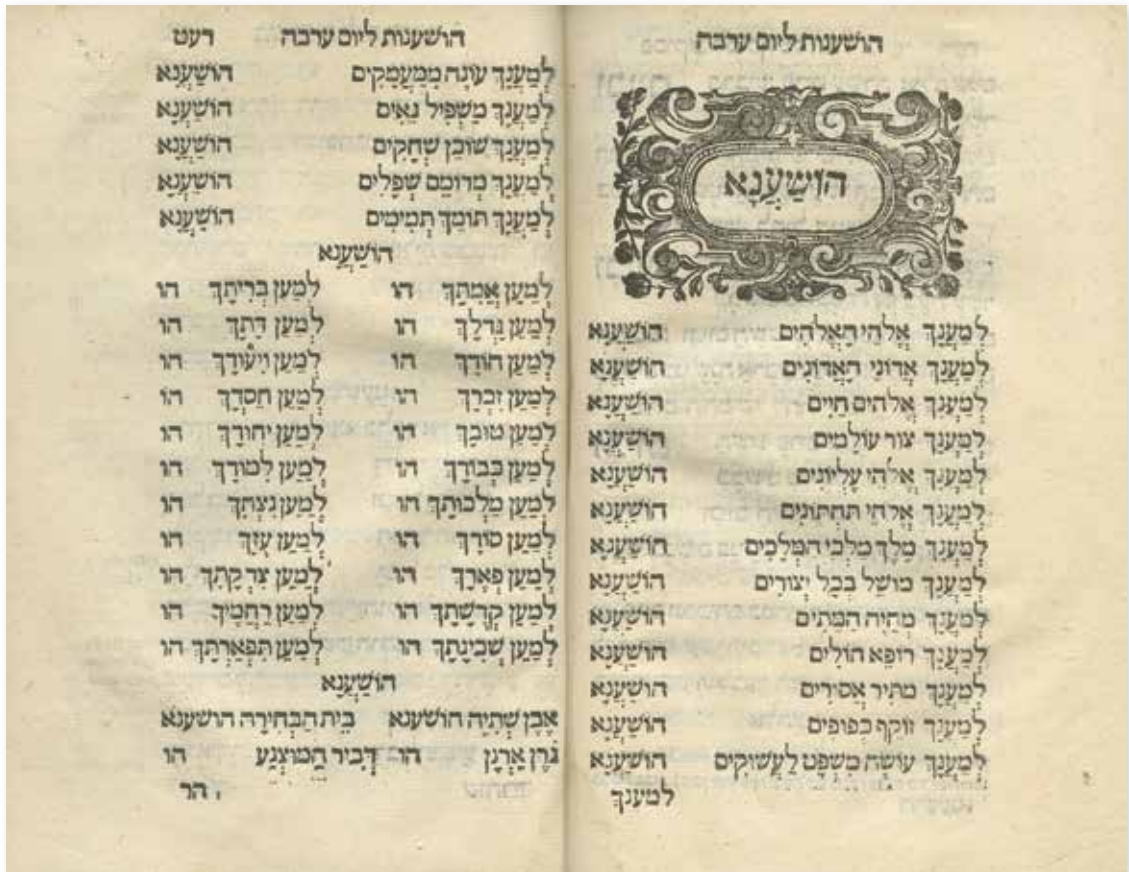 הושענות ליום ערבה
הוֹשַׁעְנָא
לְמַעֲנָךְ אֱלֹהֵי הָאֱלֹהִים הוֹשַׁעְנָא
לְמַעֲנָךְ אֲדוֹנֵי הָאֲדוֹנִים הוֹשַׁעְנָא
לְמַעֲנָךְ אֱלֹהִים חַיִּים הוֹשַׁעְנָא
לְמַעֲנָךְ צוּר עוֹלָמִים הוֹשַׁעְנָא
לְמַעֲנָךְ אֱלֹהֵי עֶלְיוֹנִים הוֹשַׁעְנָא
לְמַעֲנָךְ אֱלֹהֵי תַחְתּוֹנִים הוֹשַׁעְנָא
לְמַעֲנָךְ מֶלֶךְ מַלְכֵי הַמְּלָכִים הוֹשַׁעְנָא
לְמַעֲנָךְ מוֹשֵׁל בְּכָל יְצוּרִים הוֹשַׁעְנָא
לְמַעֲנָךְ מְחַיֵּה הַמֵּתִים הוֹשַׁעְנָא
לְמַעֲנָךְ רוֹפֵא חוֹלִים הוֹשַׁעְנָא
לְמַעֲנָךְ מַתִּיר אֲסִירִים הוֹשַׁעְנָא
לְמַעֲנָךְ זוֹקֵף כְּפוּפִים הוֹשַׁעְנָא
לְמַעֲנָךְ עוֹשֶׂה מִשְׁפָּט לַעֲשׁוּקִים הוֹשַׁעְנָא
למענך
הושענות ליום ערבה רעט
לְמַעֲנָךְ עוֹנֶה מִמַּעֲמַקִּים הוֹשַׁעְנָא
לְמַעֲנָךְ מַשְׁפִּיל גֵּאִים הוֹשַׁעְנָא
לְמַעֲנָךְ שׁוֹכֵן שְׁחָקִים הוֹשַׁעְנָא
לְמַעֲנָךְ מְרוֹמֵם שְׁפָלִים הוֹשַׁעְנָא
לְמַעֲנָךְ תּוֹמֵךְ תְּמִימִים הוֹשַׁעְנָא
הוֹשַׁעְנָא
לְמַעַן אֲמִתָּךְ הו לְמַעַן בְּרִיתָךְ הו
לְמַעַן גָּדְלָךְ הו לְמַעַן דָּתָךְ הו
לְמַעַן הוֹדָךְ הו לְמַעַן וִיעוּדָךְ הו
לְמַעַן זִכְרָךְ הו לְמַעַן חַסְדָּךְ הו
לְמַעַן טוּבָךְ הו לְמַעַן יִחוּדָךְ הו
לְמַעַן כְּבוֹדָךְ הו לְמַעַן לִמּוּדָךְ הו
לְמַעַן מַלְכוּתָךְ הו לְמַעַן נִצְחָךְ הו
לְמַעַן סוֹדָךְ הו לְמַעַן עֻזָּךְ הו
לְמַעַן פְּאֵרָךְ הו לְמַעַן צִדְקָתָךְ הו
לְמַעַן קְדֻשָּׁתָךְ הו לְמַעַן רַחֲמֶיךָ הו
לְמַעַן שְׁכִינָתָךְ הו לְמַעַן תִּפְאַרְתָּךְ הו
הוֹשַׁעְנָא
אֶבֶן שְׁתִיָּה הושענא בֵּית הַבְּחִירָה הושענא
גֹּרֶן אָרְנָן הו דְּבִיר הַמּוּצְנָע הו
הר